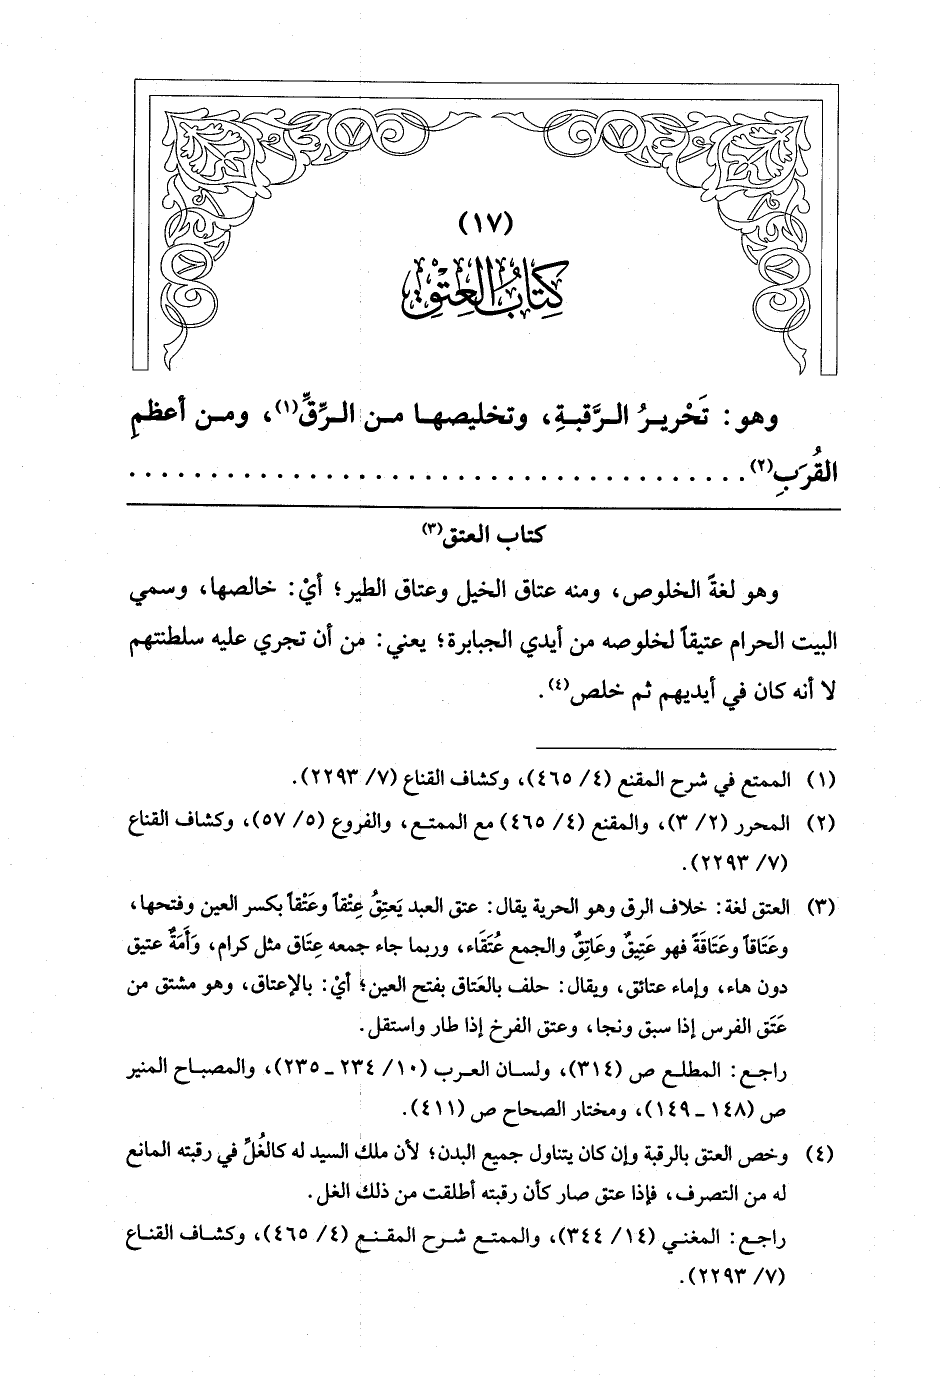 (١٧)
كِتَابُ العِتْقِ
وهو: تَحْريـرُ الـرَّقبـةِ، وتخليصهـا مـن الـرِّقِّ(١)، ومـن أعظمِ
القُرَبِ(٢). . . . . . . . . . . . . . . . . . . . . . . . . . . . . . . . . . . . . . . .
كتاب العتق(٣)
وهو لغةً الخلوص، ومنه عتاق الخيل وعتاق الطير؛ أيْ: خالصها، وسمي
البيت الحرام عتيقاً لخلوصه من أيدي الجبابرة؛ يعني: من أن تجري عليه سلطنتهم
لا أنه كان في أيديهم ثم خلص(٤).
(١) الممتع في شرح المقنع (٤/ ٤٦٥)، وكشاف القناع (٧/ ٢٢٩٣).
(٢) المحرر (٢/ ٣)، والمقنع (٤/ ٤٦٥) مع الممتـع، والفروع (٥/ ٥٧)، وكشاف القناع
(٧/ ٢٢٩٣).
(٣) العتق لغة: خلاف الرق وهو الحرية يقال: عتق العبد يَعتِقُ عِتْقاً وعَتْقاً بكسر العين وفتحها،
وعَتَاقاً وعَتَاقَةً فهو عَتِيقٌ وعَاتِقٌ والجمع عُتَقَاء، وربما جاء جمعه عِتَاق مثل كرام، وَأَمَةٌ عتيق
دون هاء، وإماء عتائق، ويقال: حلف بالعَتاق بفتح العين؛ أيْ: بالإعتاق، وهو مشتق من
عَتَق الفرس إذا سبق ونجا، وعتق الفرخ إذا طار واستقل.
راجـع: المطلـع ص (٣١٤)، ولسـان العـرب (١٠/ ٢٣٤ ـ ٢٣٥)، والمصبـاح المنير
ص (١٤٨ ـ ١٤٩)، ومختار الصحاح ص (٤١١).
(٤) وخص العتق بالرقبة وإن كان يتناول جميع البدن؛ لأن ملك السيد له كالغُلِّ في رقبته المانع
له من التصرف، فإذا عتق صار كأن رقبته أطلقت من ذلك الغل.
راجـع: المغنـي (١٤/ ٣٤٤)، والممتـع شـرح المقنـع (٤/ ٤٦٥)، وكشـاف القنـاع
(٧/ ٢٢٩٣).